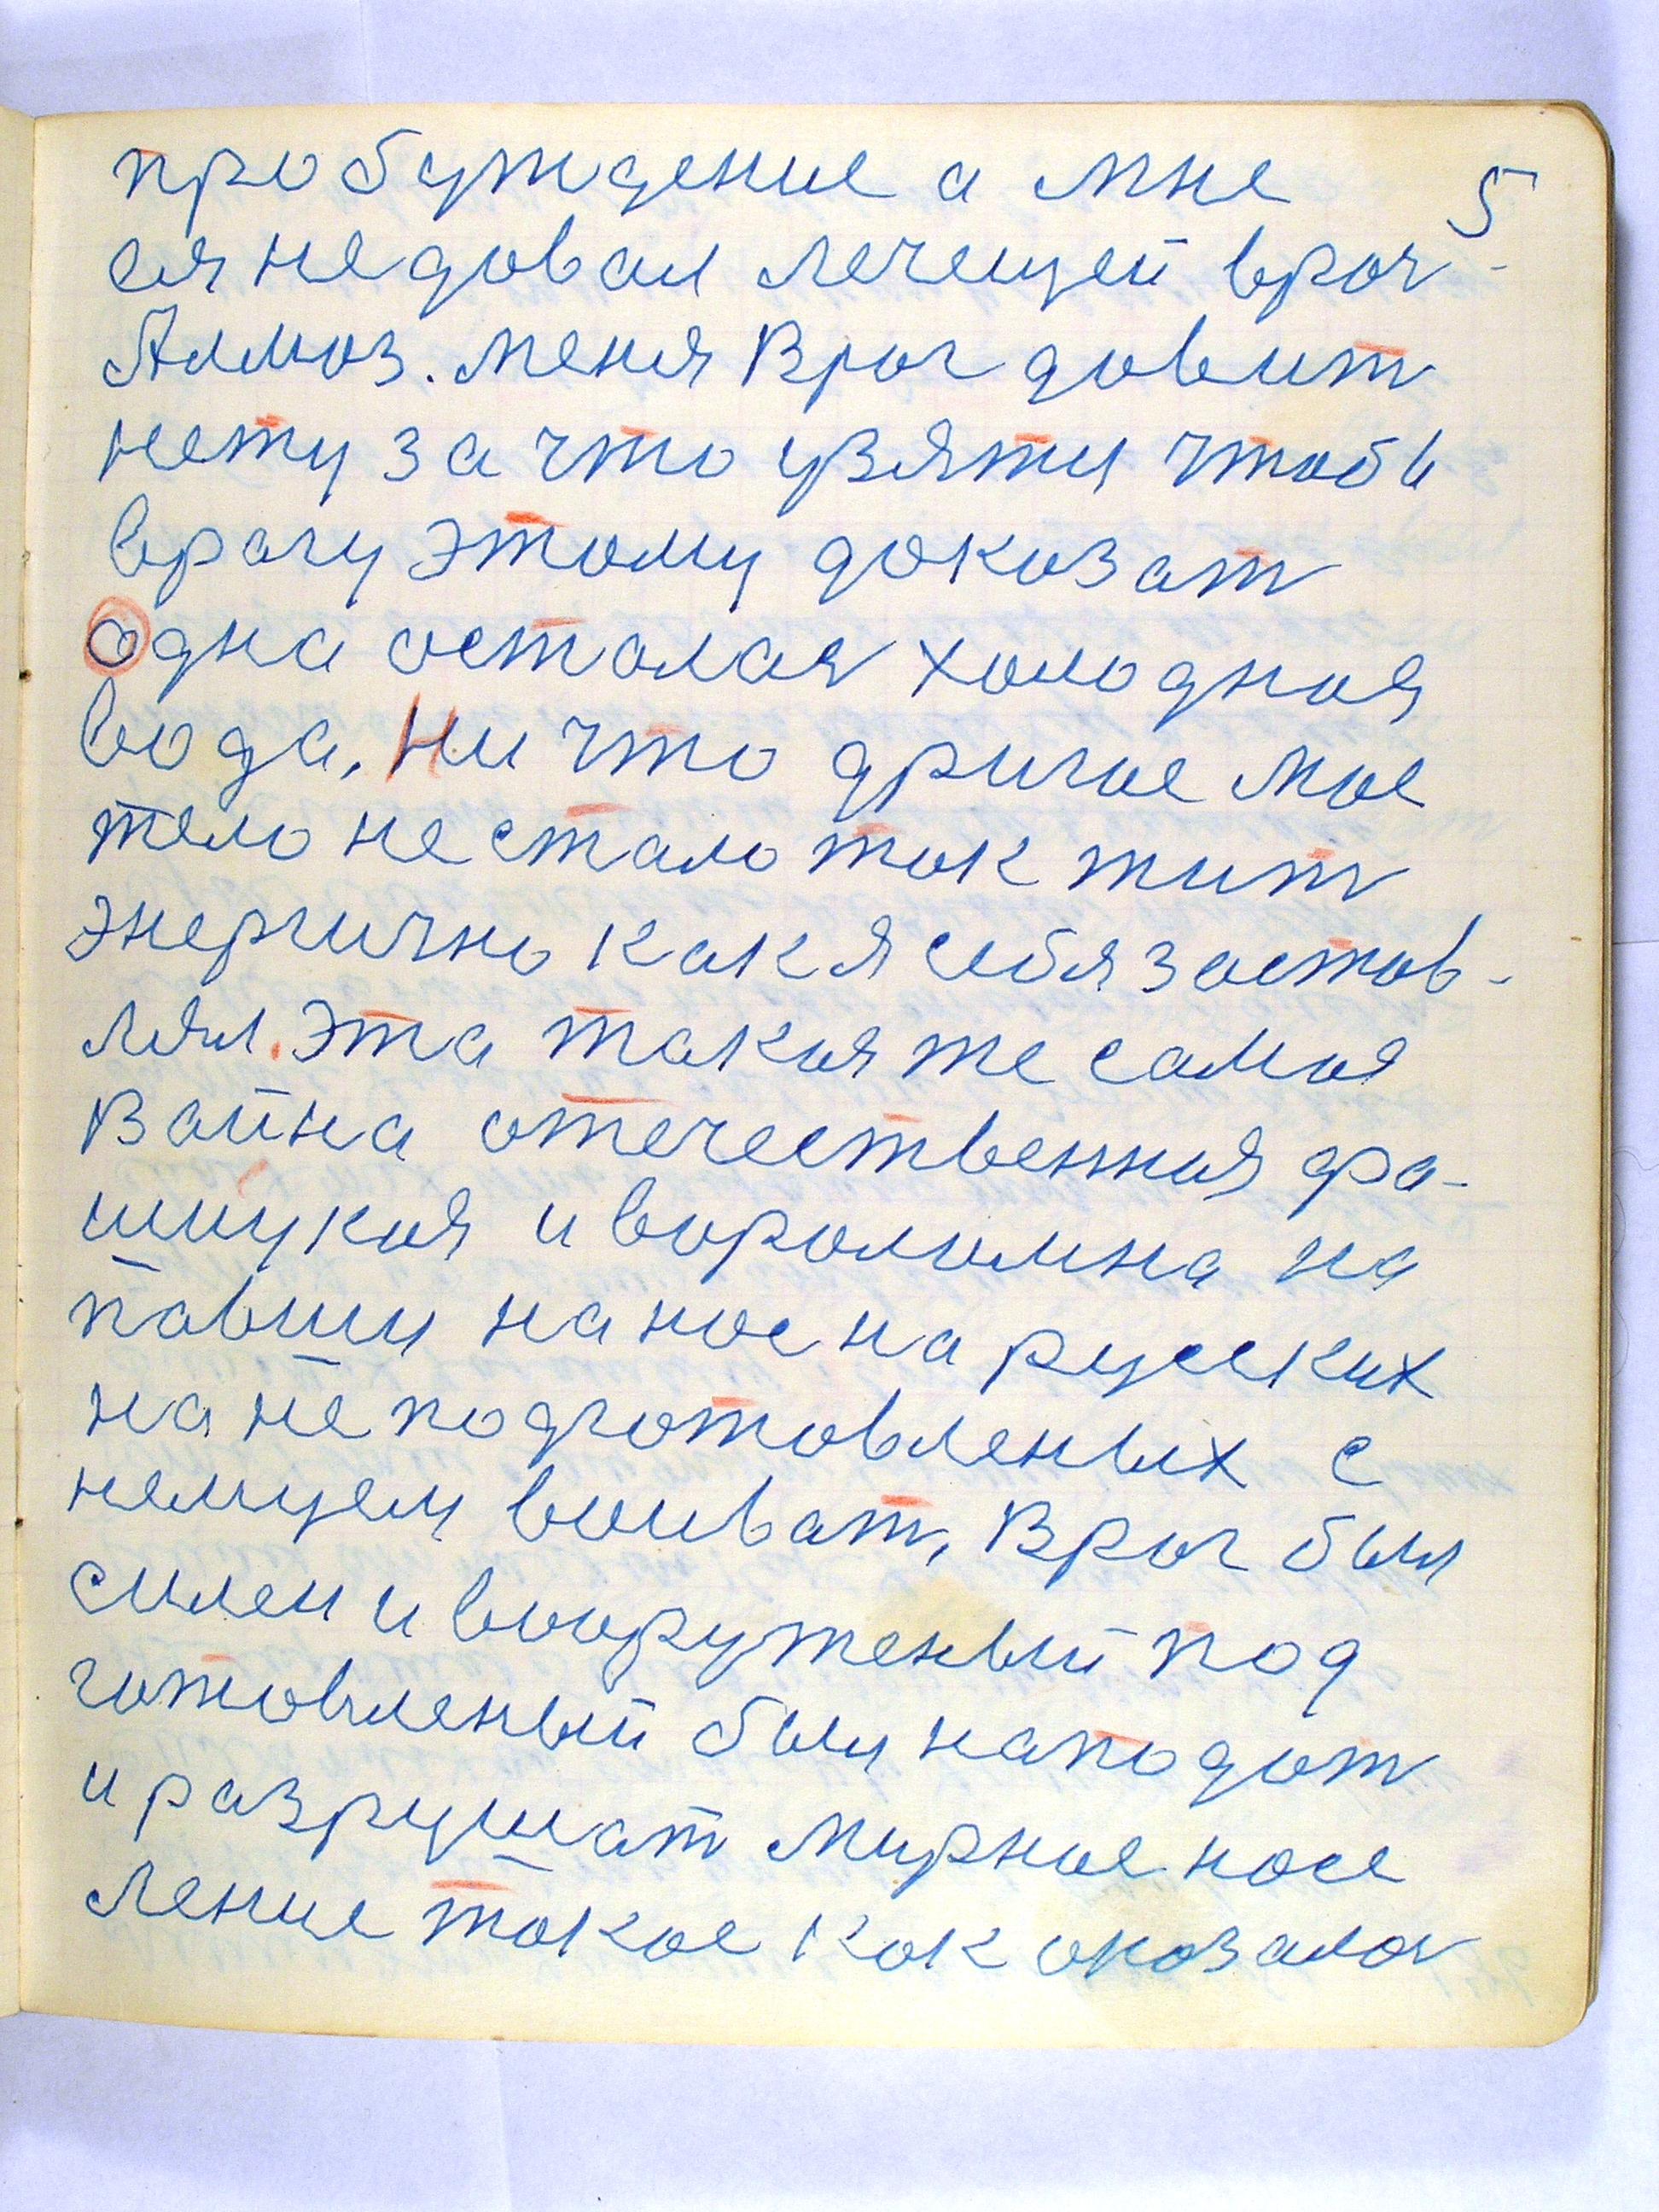 пробуждение а мне 5
ся не давал лечещей врач
Алмоз. Меня Враг давит
нету за что узяти чтобы
врагу этому доказат
одна осталася холодная
вода, Ни что другое Мое
тело не стало так жит
энергично как я себя застав-
лял. Эта такая же самая
Вайна отечественная фа-
шицкая и вороломна на
павши на нас на русских
на не подготовленых с
немцем воиват, Враг был
силен и вооруженый под
готовленый был нападат
и разрушат мирное насе
ление такое как оказалос